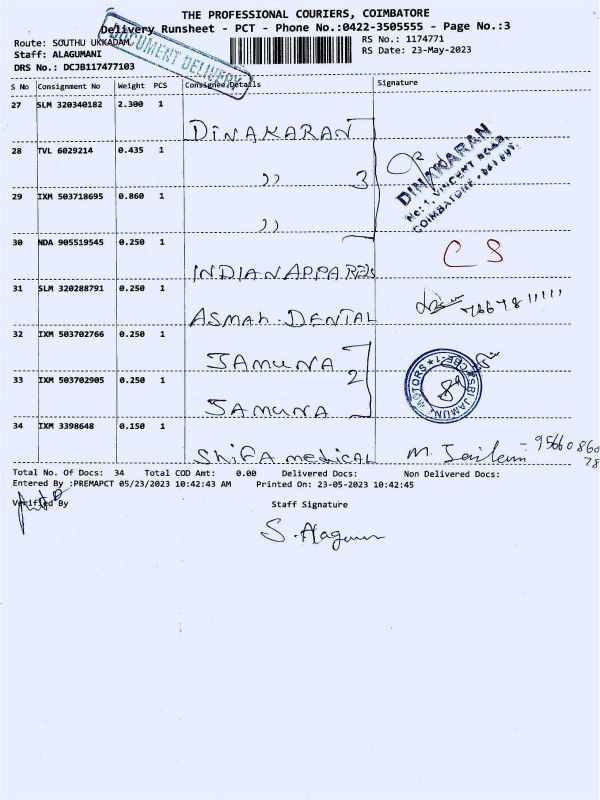 THE PROFESSIONAL COURIERS, COIMBATORE
Delivery Runsheet - PCT - Phone No.:0422-3505555 - Page No.:3
Route: SOUTHU UKKADAM
RS No.: 1174771
Staff: ALAGUMANI
RS Date: 23-May-2023
DRS No.: DCJB117477103
DOCUMENT DELIVERY
S No Consignment No Weight PCS Consignee Details Signature
27 SLM 320340182 2.300 1
DINAKARAN
28 TVL 6029214 0.435 1
,, 3
DINAKARAN
No: 1, VINCENT ROAD,
COIMBATORE
29 IXM 503718695 0.860 1
,,
30 NDA 905519545 0.250 1
INDIAN APPARELS
CS
31 SLM 320288791 0.250 1
ASMAH. DENTAL
32 IXM 503702766 0.250 1
JAMUNA
2
33 IXM 503702905 0.250 1
JAMUNA
SRI JAMUNA MOTORS CBE-1
34 IXM 3398648 0.150 1
Shifa medical
M.
95660860
78
Total No. Of Docs: 34 Total COD Amt: 0.00 Delivered Docs: Non Delivered Docs:
Entered By :PREMAPCT 05/23/2023 10:42:43 AM Printed On: 23-05-2023 10:42:45
Verified By
Staff Signature
S. Alagu